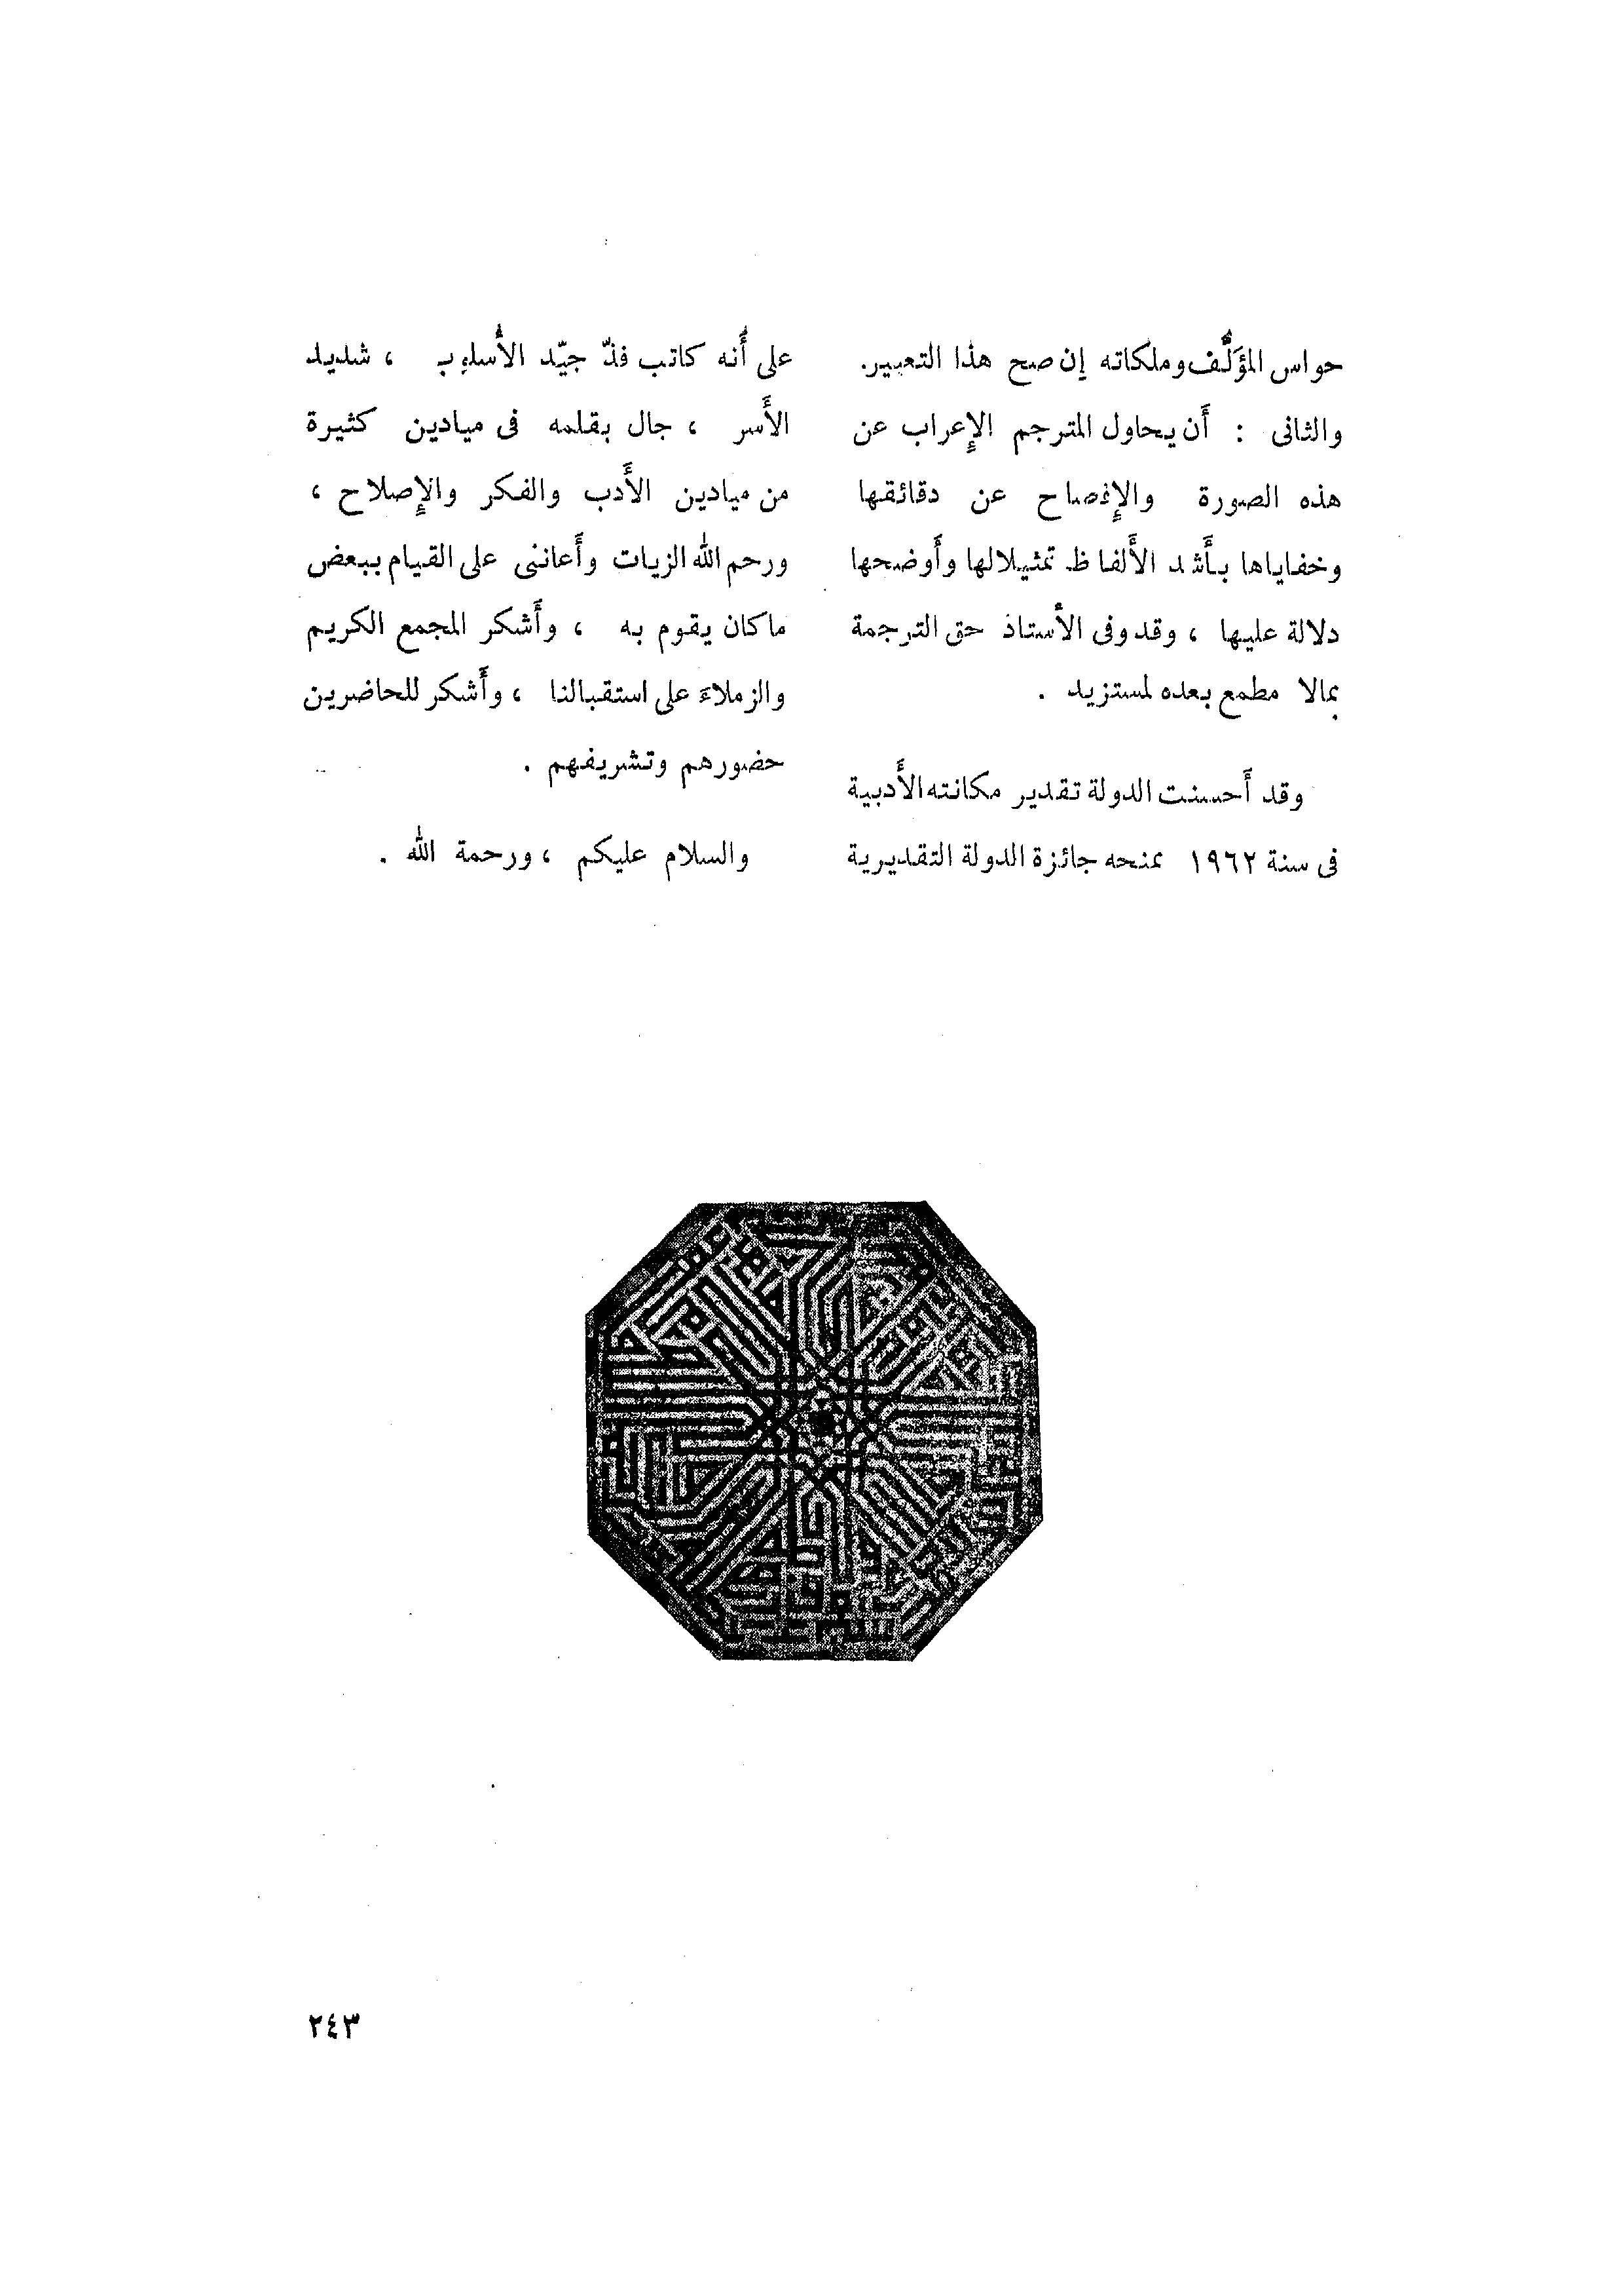 حواس المؤلّف وملكاته إن صح هذا التعبير.
والثانى : أن يحاول المترجم الإعراب عن
هذه الصورة والإفصاح عن دقائقها
وخفاياها بأشد الألفاظ تمثيلا لها وأوضحها
دلالة عليها ، وقد وفى الأستاذ حق الترجمة
بمالا مطمع بعده لمستزيد .
وقد أحسنت الدولة تقدير مكانته الأدبية
فى سنة ١٩٦٢ بمنحه جائزة الدولة التقديرية
على أنه كاتب فذّ جيّد الأسلوب ، شديد
الأسر ، جال بقلمه فى ميادين كثيرة
من ميادين الأدب والفكر والإصلاح ،
ورحم الله الزيات وأعاننى على القيام ببعض
ماكان يقوم به ، وأشكر المجمع الكريم
والزملاءَ على استقبالنا ، وأشكر للحاضرين
حضورهم وتشريفهم .
والسلام عليكم ، ورحمة الله .
٢٤٣